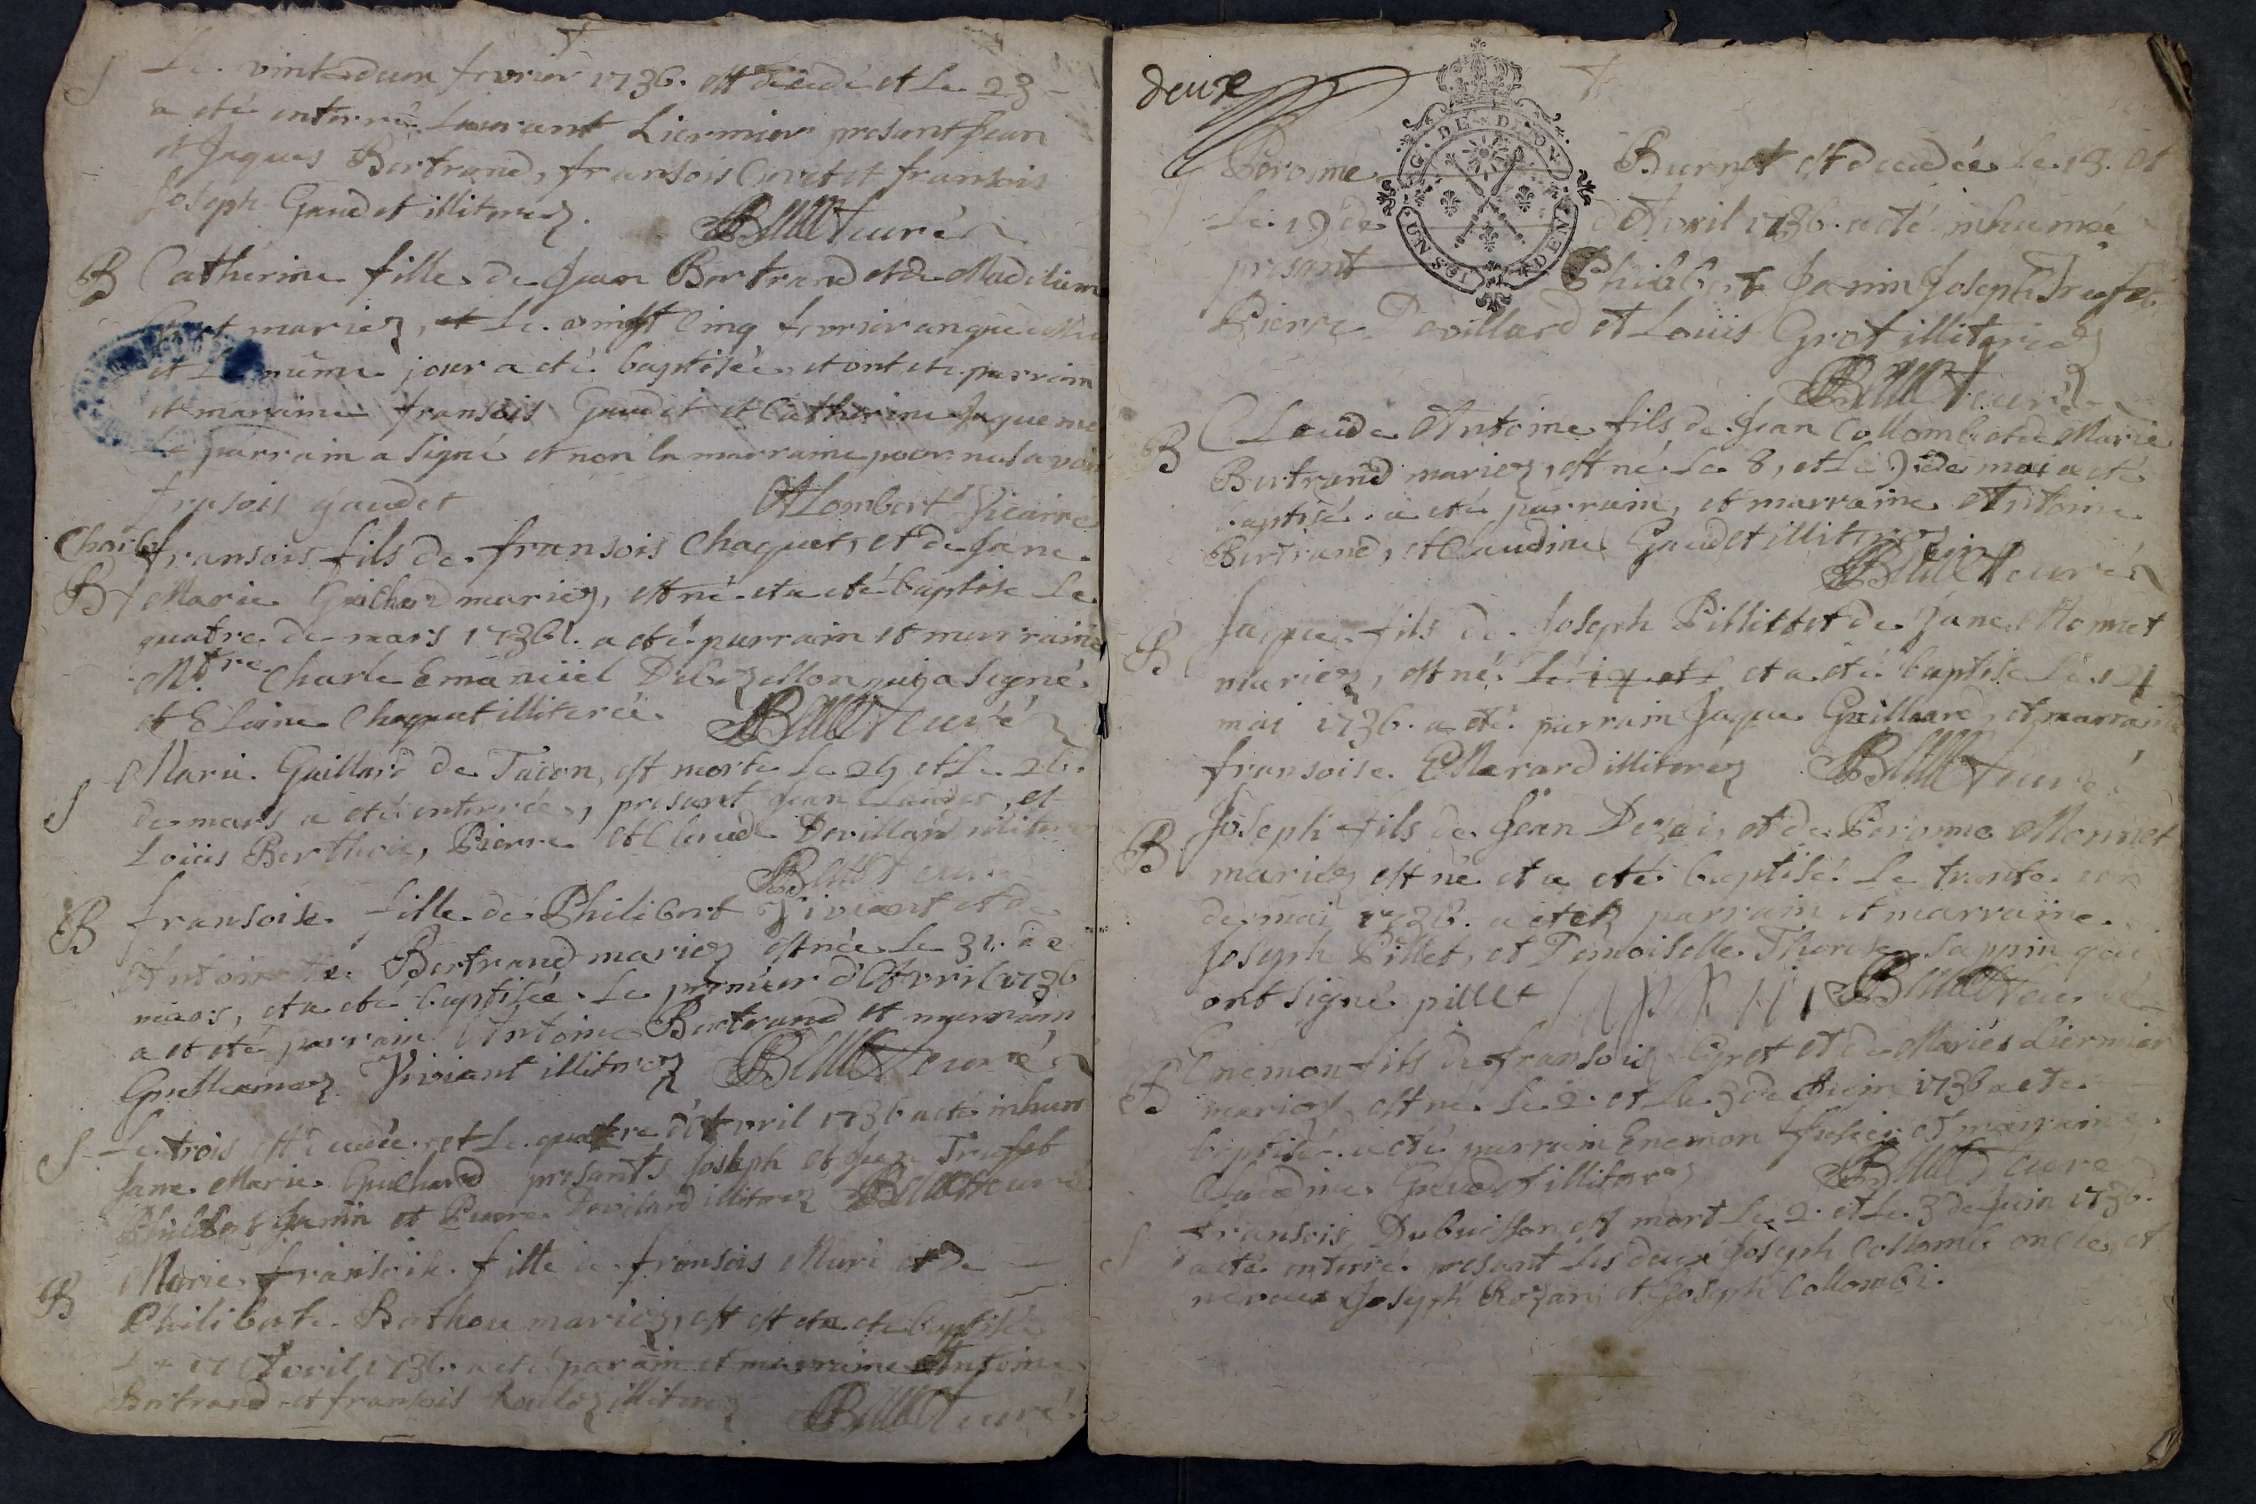 S Le vint deux fevrier 1736. est decedé et le 23
a eté enterré Laurant Liermier present Jean
et Jaques Bertrand, fransois Cuvet et fransois
Joseph Gaudet illiterez. curé
B Catherine fille de Jean Bertrand et de Madelaine
mariez, le vingt cinq fevrier
et le même jour a eté baptisée et ont ete parrain
et marraine fransois Gaudet et Catherine Jaqueme
le parrain a signé et non la marraine pour ne savoir
fransois gaudet Lombert Vicaire
Charle
fransois fils de fransois Chaquet, et de Jane
B Marie Guichard mariez, est né et a eté baptisé le
quatre de mars 1736. a eté parrain et marraine
Mtre Charle Emanüel qui a signé
et Chaquet illiterée. curé
Marie Guillard de Tacon, est morte le 25 et le 26
S de mars a eté enterrée, presant Jean
Loüis, Pierre et Claude Devillard
curé
B fransoise fille de Philibert Viviant et de
Antoinette Bertrand mariez est née le 31 de
mars, et a eté baptisée le premier d'Avril 1736
a eté parrain Antoine Bertrand et marraine
Viviant illiterez curé
S Le trois est decedée et le quatre d'Avril 1736 a eté inhum
Jane Marie Guichard presants Joseph et Jean Trufet
Philibert Janin et Pierre Devillard illiterez curé
Marie fransoise fille de fransois et de
B Philiberte mariez, est et a eté baptisée
17 Avril 1736. a eté parain et marraine Antoine
Bertrand et fransois illiterez curé
deux
G. DE DIJON
UN SOL DEN
Peronne Burnet est decedée le 18. et
le 19 de d'Avril 1736. a eté inhumée
presant Philibert Janin Joseph Trufet
Pierre Devillard et Loüis Grot illiterez
curé
Claude Antoine fils de Jean Collomb et de Marie
B Bertrand mariez, est né le 8, et le 9 de mai a eté
baptisé a eté parrain, et marraine Antoine
Bertrand, et Claudine Gaudet illiterez
curé
Jaque fils de Joseph Pillet et de Jane Monnet
B mariez, est né et a eté baptisé le 14
mai 1736. a eté parrain Jaque Guillard, et marraine
fransoise illiterez curé
Joseph fils de Jean et de Peronne Monnet
B mariez est né et a eté baptisé le trente
de mai 1736. a eté parrain et marraine
Joseph Pillet, et Demoiselle Therese Sappin qui
ont signé pillet curé
Enemon fils de fransois Gret et de Marie Liermier
B mariez, est né le 2 et le 3 de Juin 1736 a ete
baptisé a eté parrain Enemon et marraine
Claudine Gaudet illiterez curé
fransois Dubuisson est mort le 2 et le 3 de Juin 1736.
S a eté enterré presant les deux Joseph Collomb oncle et
neveux Joseph Rozan et Joseph Collomb.